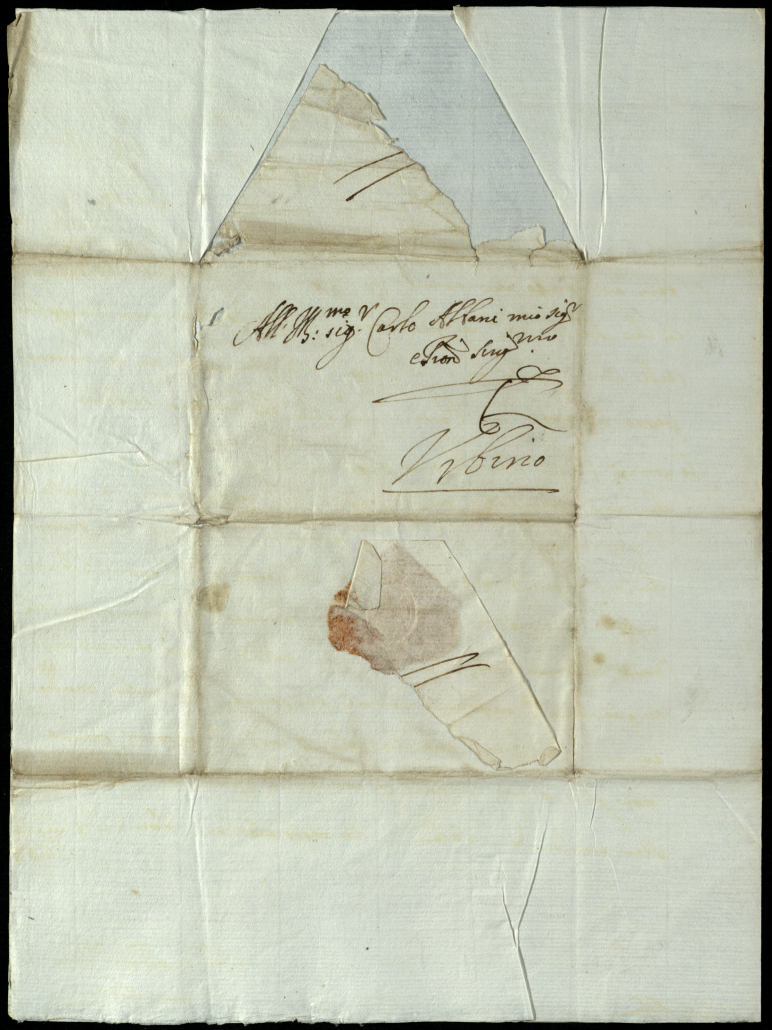 All' Ill:mo sig.r Carlo Albani mio sig.r
e Pron Sing.mo
Vrbino